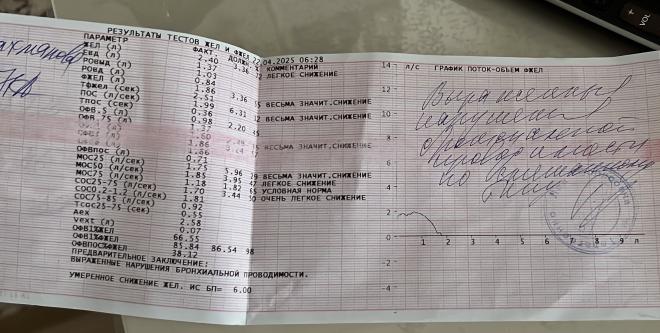 РЕЗУЛЬТАТЫ ТЕСТОВ ЖЕЛ И ФЖЕЛ 22.04.2025 06:28
ПАРАМЕТР ФАКТ ДОЛЖ % КОММЕНТАРИЙ
ЖЕЛ (л) 2.40 3.36 72 ЛЕГКОЕ СНИЖЕНИЕ
ЕВД (л) 1.37
РОВЫД (л) 1.03
РОВД (л) 0.84
ФЖЕЛ (л) 1.86 3.36 55 ВЕСЬМА ЗНАЧИТ.СНИЖЕНИЕ
Тфжел (сек) 2.51
ПОС (л/сек) 1.99 6.31 32 ВЕСЬМА ЗНАЧИТ.СНИЖЕНИЕ
Тпос (сек) 0.36
ОФВ.5 (л) 0.98 2.20 45
ОФВ.75 (л) 1.37
1.60
1.86
ВЕСЬМА ЗНАЧИТ.СНИЖЕНИЕ
1.86
ОФВпос (л) 0.71
МОС25 (л/сек) 1.75 5.96 29 ВЕСЬМА ЗНАЧИТ.СНИЖЕНИЕ
МОС50 (л/сек) 1.85 3.95 47 ЛЕГКОЕ СНИЖЕНИЕ
МОС75 (л/сек) 1.18 1.82 65 УСЛОВНАЯ НОРМА
СОС25-75 (л/сек) 1.70 3.44 50 ОЧЕНЬ ЛЕГКОЕ СНИЖЕНИЕ
СОС0.2-1.2 (л/сек) 1.81
СОС75-85 (л/сек) 0.92
Тсос25-75 (сек) 0.55
Aex 2.58
Vext (л) 0.07
ОФВ1%ЖЕЛ 66.55
ОФВ1%ФЖЕЛ 85.84 86.54 98
ОФВПОС%ФЖЕЛ 38.12
ПРЕДВАРИТЕЛЬНОЕ ЗАКЛЮЧЕНИЕ:
ВЫРАЖЕННЫЕ НАРУШЕНИЯ БРОНХИАЛЬНОЙ ПРОВОДИМОСТИ.
УМЕРЕННОЕ СНИЖЕНИЕ ЖЕЛ. ИС БП= 6.00
14 л/с ГРАФИК ПОТОК-ОБЪЕМ ФЖЕЛ
12
10
8
6
4
2
0
1 2 3 4 5 6 7 8 9 л
-2
-4
Выраженные
нарушения
бронхиальной
проводимости
по смешанному
типу
VOL